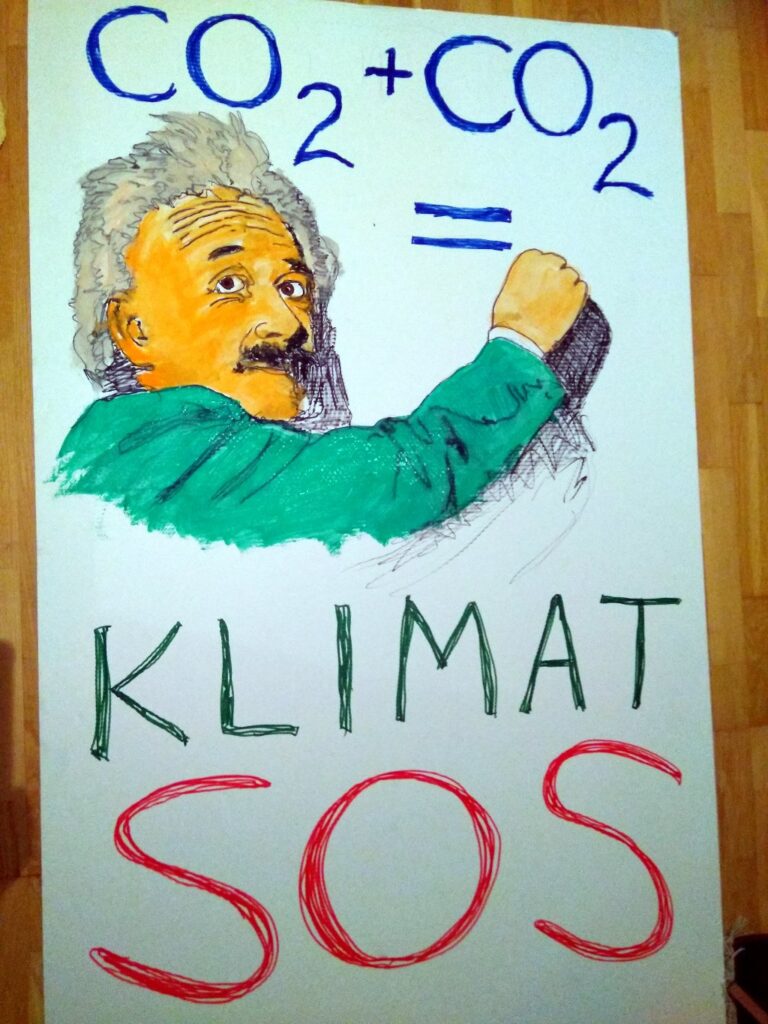 CO₂+CO₂
=
KLIMAT
SOS